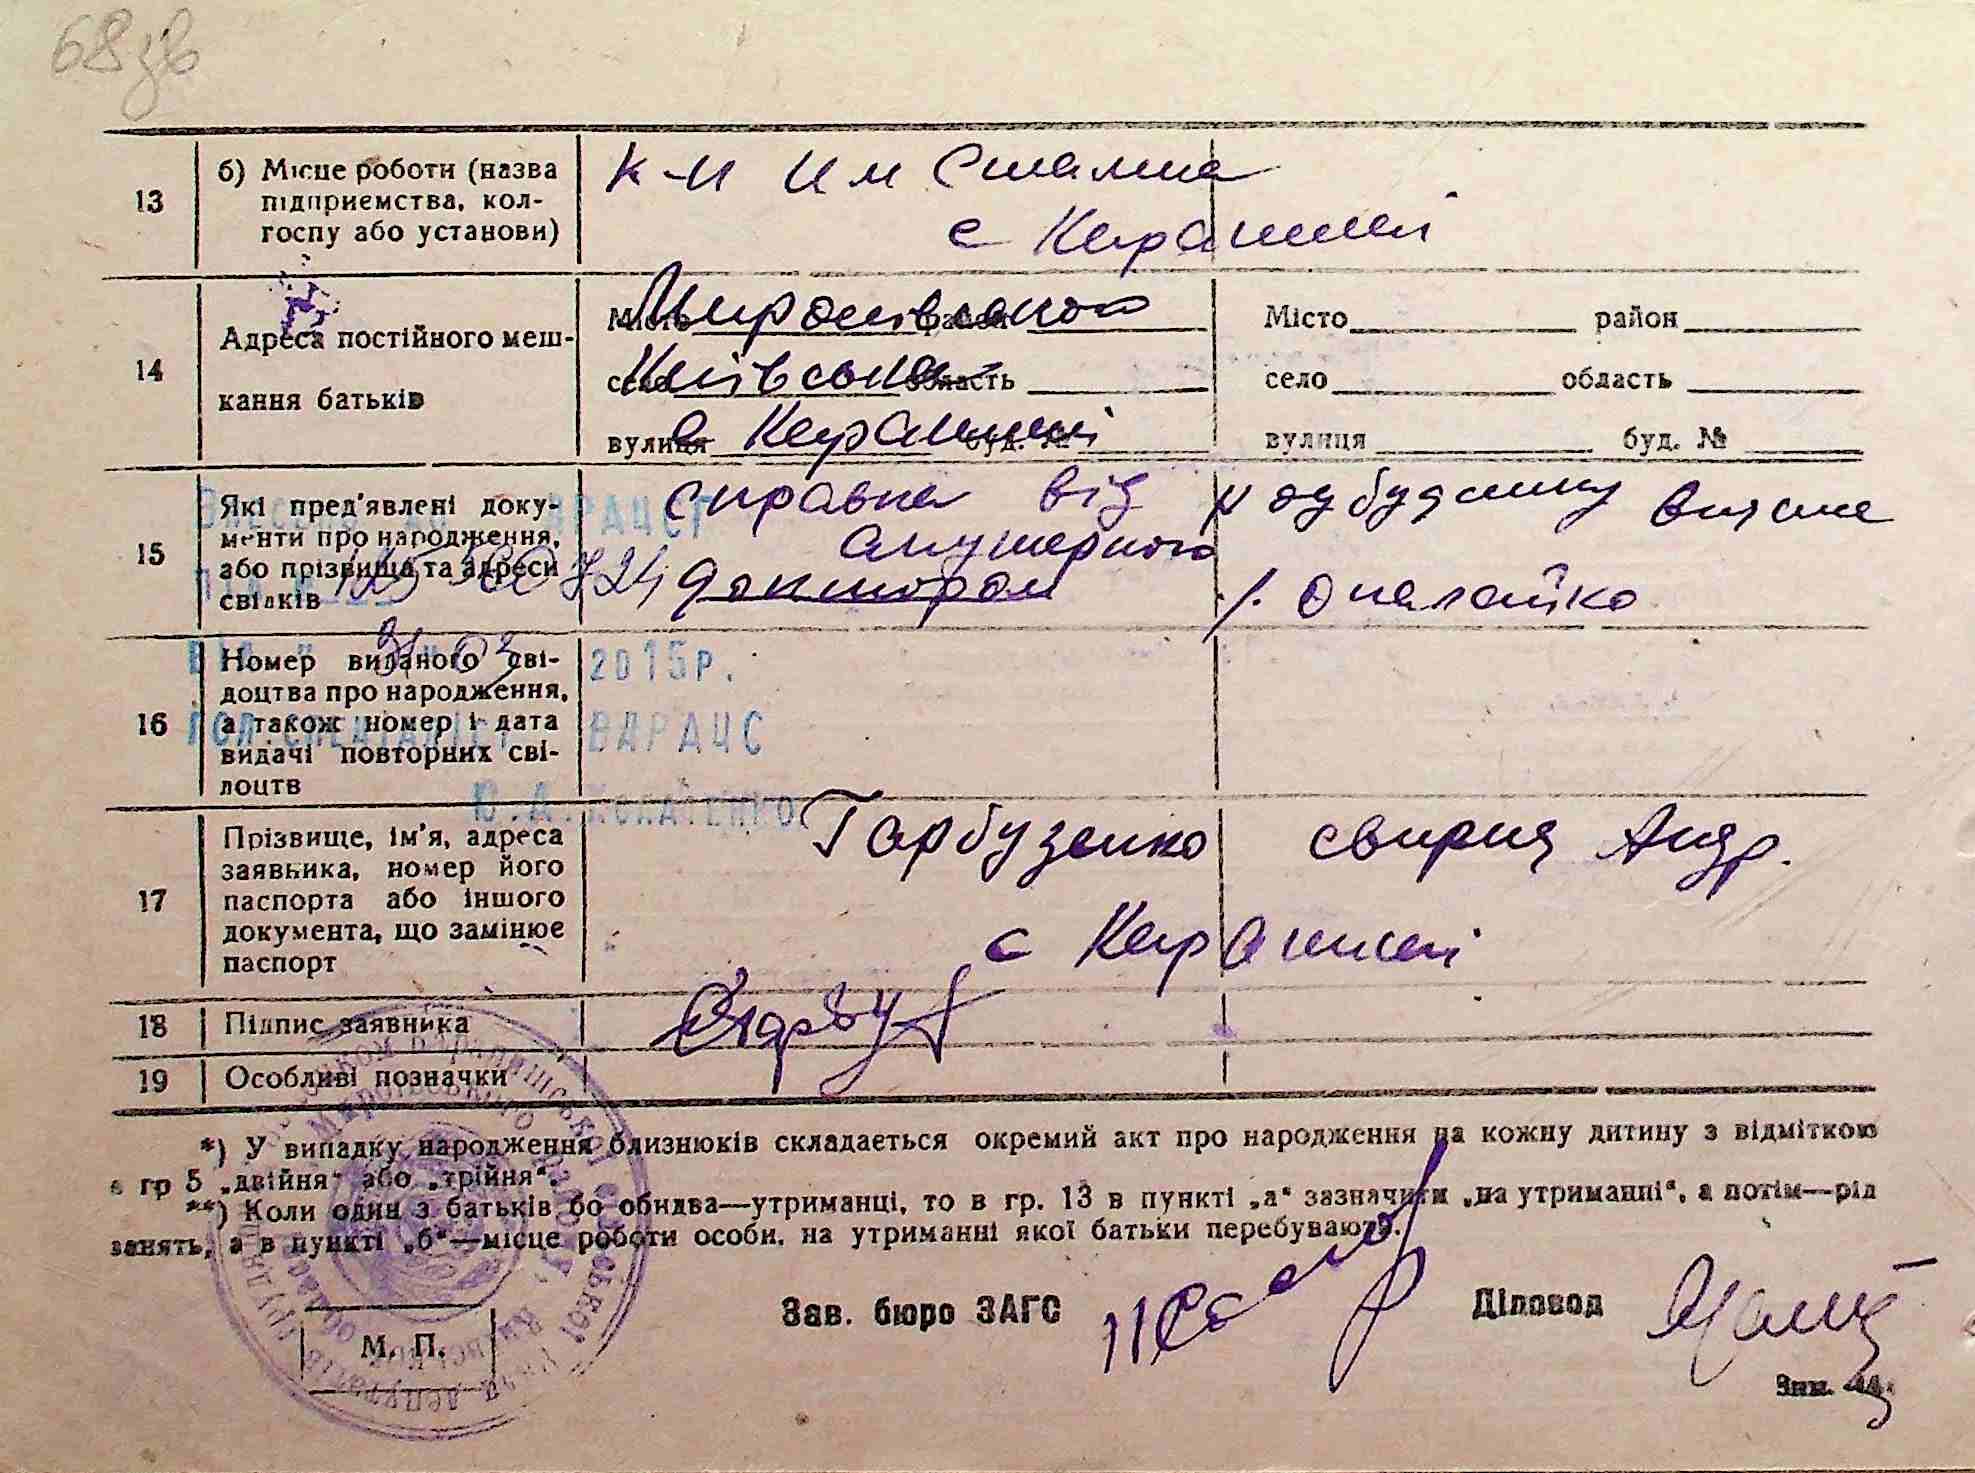 68зв
13
б) Місце роботи (назва
підприемства, кол-
госпу або установи)
к-п им Сталина
с Карапиші
14
Адреса постійного меш-
кання батьків
Місто район
село область
вулиця буд. №
Миронівського
Київська
с Карапиші
Місто район
село область
вулиця буд. №
15
Які пред'явлені доку-
менти про народження,
або прізвища та адреси
свідків
справка від
акушерного
доктором
16
Номер виданого сві-
доцтва про народження,
а також номер і дата
видачі повторних сві-
доцтв
2015р.
ВДРАЦС
17
Прізвище, ім'я, адреса
заявника, номер його
паспорта або іншого
документа, що замінює
паспорт
Гарбузенко свирид Андр.
с Карапиші
18
Підпис заявника
Гарбуз
19
Особливі позначки
*) У випадку народження близнюків складається окремий акт про народження на кожну дитину з відміткою
в гр 5 „двійня" або „трійня".
**) Коли один з батьків бо обидва—утриманці, то в гр. 13 в пункті „а" зазначити „на утриманні", а потім—рід
занять, а в пункті „б"—місце роботи особи, на утриманні якої батьки перебувають.
М. П.
Зав. бюро ЗАГС
Діловод